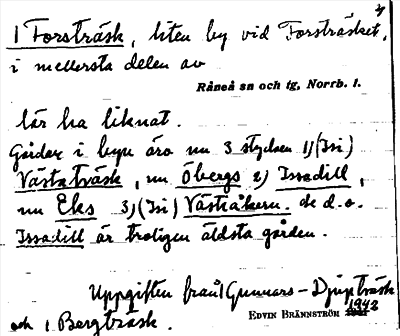 1 Forsträsk, liten by vid Forsträsket,
i mellersta delen av
Råneå sn och tg, Norrb. l.
lär ha liknat.
Gårdar i byn äro nu 3 stycken 1) (Isi)
Västaträsk, nu Öbergs 2) Issadill,
nu Eks 3) (Isi) Västiåkern. de d.o.
Issadill är troligen äldsta gården.
Uppgiften från 1 Gunnars-Djupträsk
och 1 Bergträsk.
EDVIN BRÄNNSTRÖM 1942